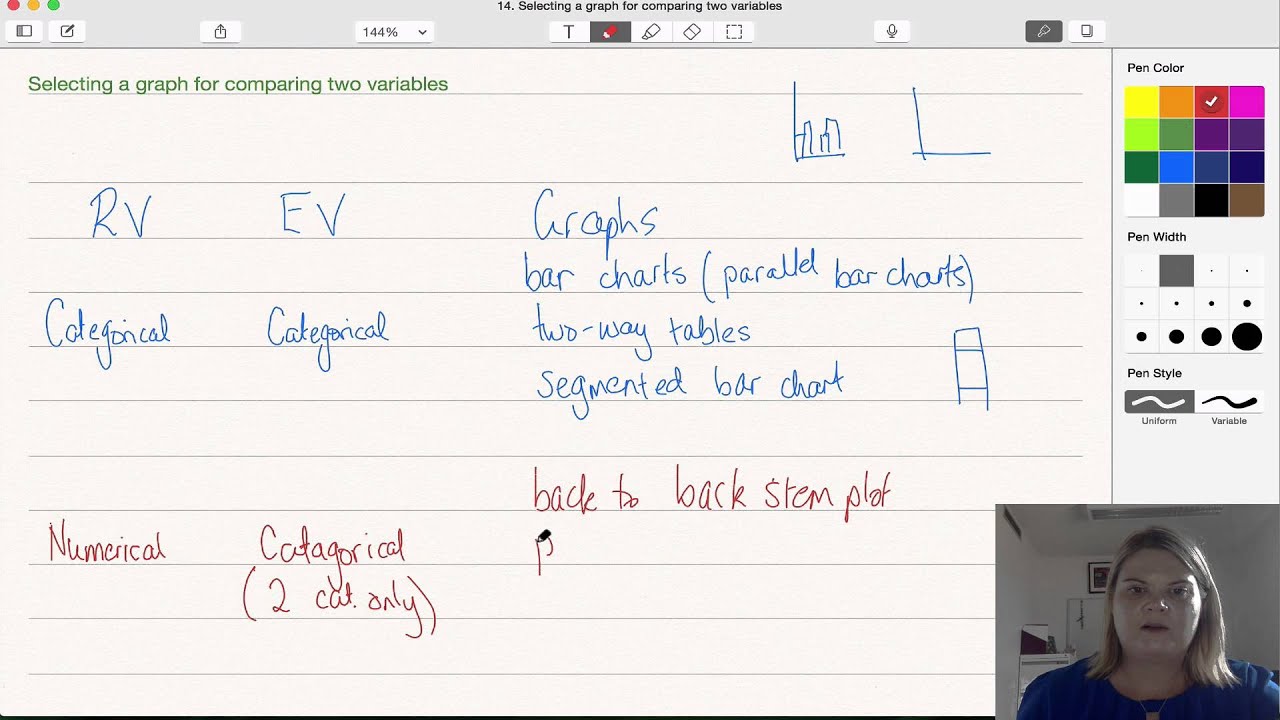 14. Selecting a graph for comparing two variables
T
144%
Selecting a graph for comparing two variables
RV EV Graphs
bar charts (parallel bar charts)
Categorical Categorical two-way tables
segmented bar chart
back to back stem plot
Numerical Catagorical p
(2 cat. only)
Pen Color
Pen Width
Pen Style
Uniform Variable